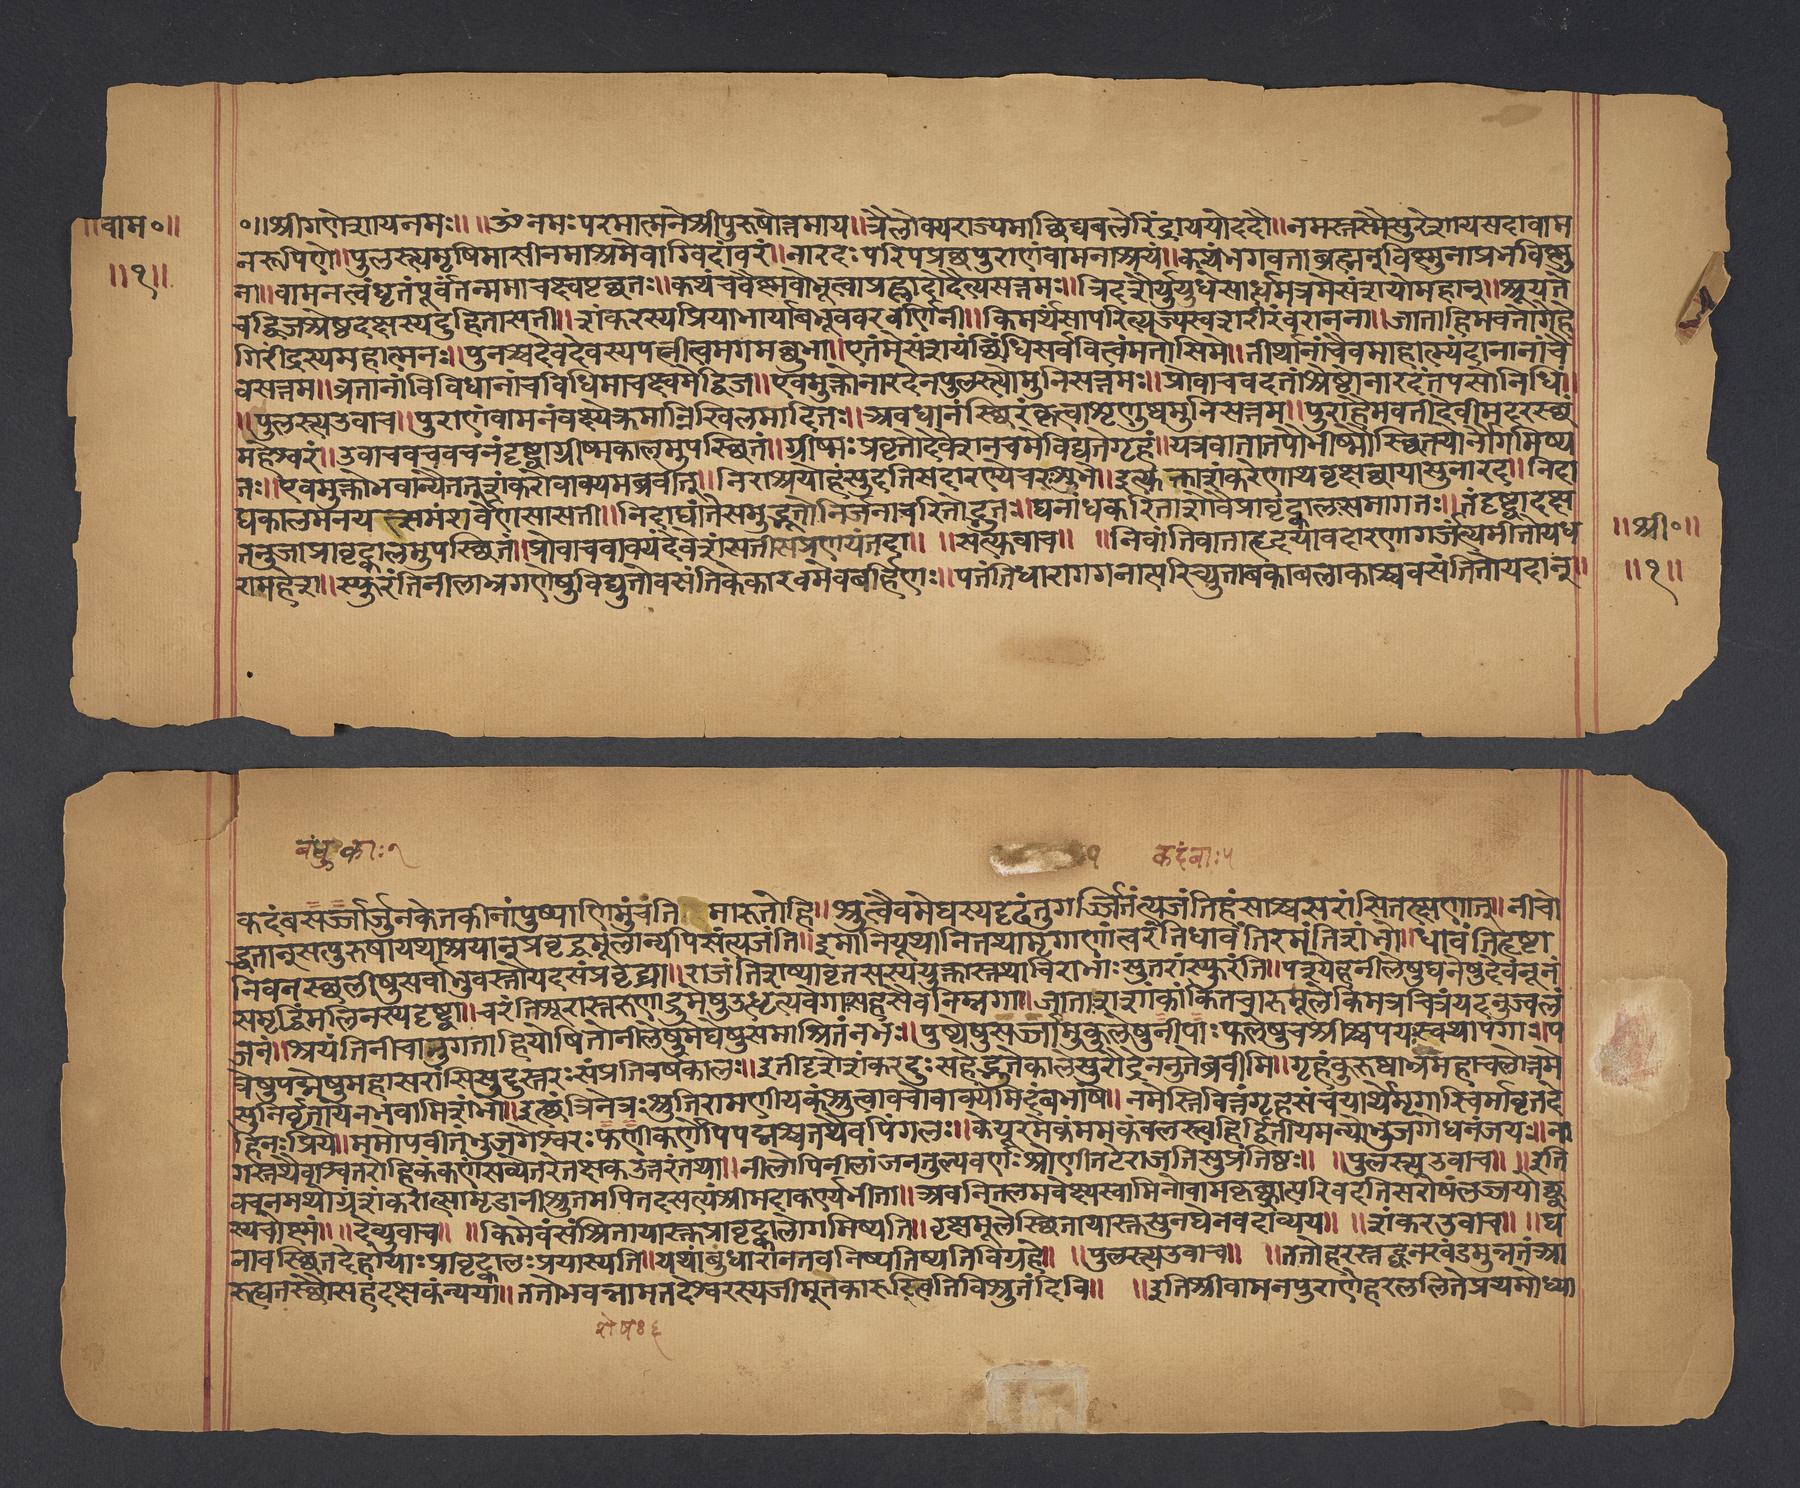 ॥वाम॰॥
॥१॥
०॥श्रीगणेशायनमः॥ ॥ॐ नमः परमात्मनेश्रीपुरुषोत्तमाय॥त्रैलोक्यराज्यमाछिद्यबलेरिंद्राययोददौ॥नमस्तस्मैसुरेशायसदावाम
नरूपिणे॥पुलस्त्यमृषिमासीनमाश्रमेवाग्विदांवरं॥नारदः परिपप्रछपुराणंवामनाश्रयं॥कथंभगवताब्रह्मन्विष्णुनाप्रभविष्णु
ना॥वामनत्वंधृतंपूर्वंतन्ममाचक्ष्वपृछतः॥कथंचवैष्णवोभूत्वाप्रह्लादोदैत्यसत्तमः॥त्रिदशैर्युयुधेसार्धमत्रमेसंशयोमहान्॥श्रूयते
चद्विजश्रेष्ठदक्षस्यदुहितासती॥शंकरस्यप्रियाभार्याबभूववरवर्णिनी॥किमर्थंसापरित्यज्यस्वशरीरंवरानना॥जाताहिमवतोगेहे
गिरींद्रस्यमहात्मनः॥पुनश्चदेवदेवस्यपत्नीत्वमगमच्छुभा॥एतंमेसंशयंछिंधिसर्ववित्त्वंमतोसिमे॥तीर्थानांचैवमाहात्म्यंदानानांचै
वसत्तम॥व्रतानांविविधानांचविधिमाचक्ष्वमेद्विज॥एवमुक्तोनारदेनपुलस्त्योमुनिसत्तमः॥प्रोवाचवदतांश्रेष्ठोनारदंतपसोनिधिं॥
॥पुलस्त्यउवाच॥पुराणंवामनंवक्ष्येक्रमान्निखिलमादितः॥अवधानंस्थिरंकृत्वाशृणुष्वमुनिसत्तम॥पुराहैमवतीदेवीमंदरस्थं
महेश्वरं॥उवाचवचवचनंदृष्ट्वाग्रीष्मकालमुपस्थितं॥ग्रीष्मः प्रवृत्तोदेवेशनचमेविद्यतेगृहं॥यत्रवातातपौभीष्मौस्थितयोर्नौगमिष्य
तः॥एवमुक्तोभवान्यैततुशंकरोवाक्यमब्रवीत्॥निराश्रयोहंसुदतिसदारण्यचरःशुभे॥इत्युक्ताशंकरेणाथवृक्षछायासुनारद॥निदा
घकालमनयत्समंशर्वेणसासती॥निदाघांतेसमुद्भूतोनिर्जनाचरितोद्भुतः॥घनांधकारिताशोवैप्रावृट्कालःसमागतः॥तंदृष्ट्वादक्ष
तनुजाप्रावृट्कालमुपस्थितं॥प्रोवाचवाक्यंदेवेशंसतीसप्रणयंतदा॥ ॥सत्युवाच॥ ॥निवांतिवाताहृदयावदारणागर्जंत्यमीतोयध
रामहेश॥स्फुरंतिनीलाभ्रगणेषुविद्युतोवसंतिकेकारवमेवबर्हिणः॥पतंतिधारागगनात्सरिच्युताबकाबलाकाश्चवसंतितोयदान्॥
॥श्री॰॥
॥१॥
बंधुकाः१
कदंबाः५
कदंबसर्ज्जार्जुनकेतकीनांपुष्पाणिमुंचंति मारुतोह्नि॥श्रुत्वैवमेघस्यदृढंतुगर्ज्जितंत्यजंतिहंसाश्चसरांसितत्क्षणात्॥नीचो
द्धतान्सत्पुरुषायथाश्रयान्प्रवृद्धमूलान्यपिसंत्यजंति॥इमानियूथानितथामृगाणांत्वरंतिधावंतिरमंतिशंभो॥धावंतिहृष्टा
निवनस्थलीषुसर्वाभुवस्तोयदसंप्रवृद्ध्या॥राजंतिशष्पावृतसस्ययुक्तास्तथाचिराभाःसुतरांस्फुरंति॥पश्येहनीलेषुघनेषुदेवनूनं
समृद्धिंमलिनस्यदृष्ट्वा॥चरंतिशूरास्तरुणद्रुमेषुउधृत्यवेगात्सहसैवनिम्नगा॥जाताशशांकांकितचारुमूलेकिमत्रचित्रंयदनुज्वलं
जनं॥श्रयंतिनीचानुगताहियोषितोनीलेषुमेघेषुसमाश्रितंनभः॥पुष्पेषुसर्ज्जामुकुलेषुनीपाः फलेषुचश्रीश्चपयःस्वथापगा॥प
त्रेषुपद्मेषुमहासरांसिसुदुस्तरःसंप्रतिवर्षकालः॥इतीदृशेशंकरदुःसहेद्भुतेकालेसुरौद्रेननुतेब्रवीमि॥गृहंकुरुष्वाश्रमहाचलोत्तमे
सुनिर्वृतायेनभवामिशंभो॥इत्थंत्रिनेत्रःश्रुतिरामणीयकंश्रुत्वावचोवाक्यमिदंबभाषे॥नमेस्तिवित्तंगृहसंचयार्थेमृगारिचर्मावृतदे
हिनःप्रिये॥ममोपवीतंभुजगेश्वरः फणीकर्णेपिपद्मश्चतथैवपिंगलः॥केयूरमेकंममकंबलस्त्वहिर्द्वितीयमन्योभुजगोधनंजयः॥ना
गस्तथैवाश्वतरोहिकंकणंसव्येतरेतक्षकउत्तरंतथा॥नीलोपिनीलांजनतुल्यवर्णःश्रोणीतटेराजतिसुप्रतिष्ठः॥ ॥पुलस्त्यउवाच॥ ॥इति
वचनमथोग्रंशंकरात्सामृडानीश्रुतमपितदसत्यंश्रीमदाकर्ण्यभीता॥अवनितलमवेक्ष्यस्वामिनोवामकृच्छ्रात्परिवदतिसरोषंलज्जयोछ्व
स्यचोष्णं॥ ॥देव्युवाच॥ ॥किमेवंसंश्रितायास्तप्रावृट्कालोगमिष्यति॥वृक्षमूलेस्थितायास्तेसुनघेनवदाव्यय॥ ॥शंकरउवाच॥ ॥घ
नावस्थितदेहायाः प्रावृट्कालः प्रयास्यति॥यथांबुधारानतवनिष्पतिष्यतिविग्रहे॥ ॥पुलस्त्यउवाच॥ ॥ततोहरस्तद्घनखंडमुन्नतंआ
रुह्यतस्थौसहदक्षकंन्यया॥ततोभवन्नामतदेश्वरस्यजीमूतकारुस्त्वितिविश्रुतंदिवि॥ ॥इतिश्रीवामनपुराणेहरललितेप्रथमोध्या
शेषः६